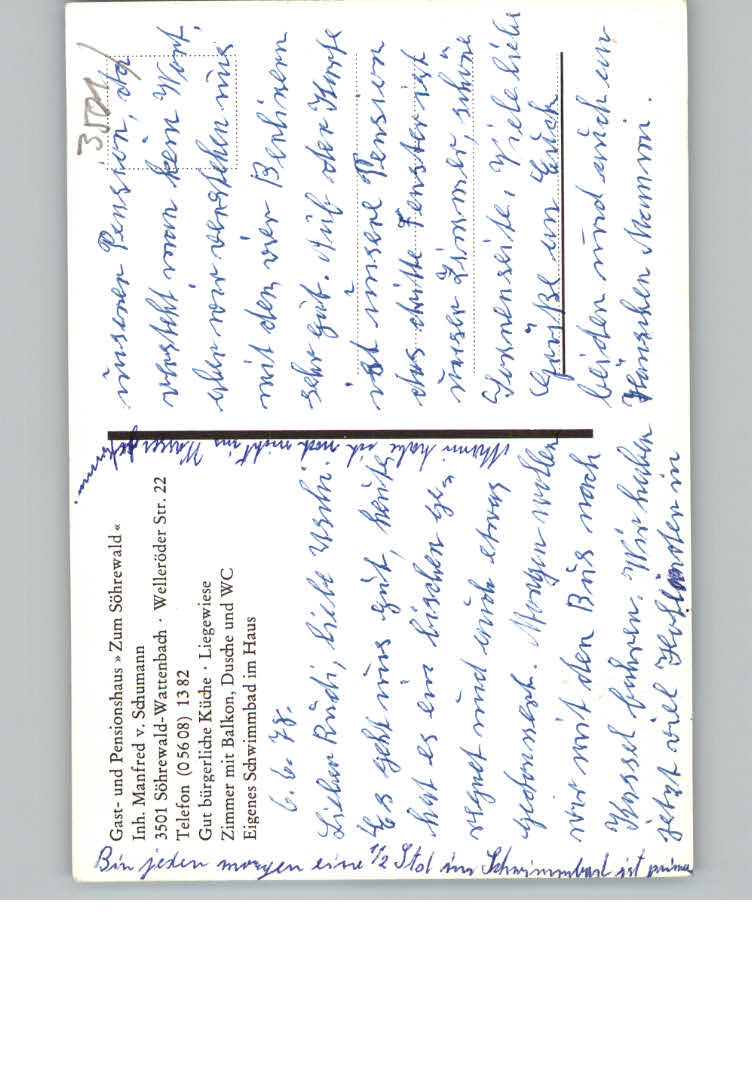 Gast- und Pensionshaus » Zum Söhrewald «
Inh. Manfred v. Schumann
3501 Söhrewald-Wattenbach · Welleröder Str. 22
Telefon (0 56 08) 13 82
Gut bürgerliche Küche · Liegewiese
Zimmer mit Balkon, Dusche und WC
Eigenes Schwimmbad im Haus
6. 6. 78.
Lieber Rudi, liebe Uschi.
Es geht uns gut, heute
hat es ein bischen ge-
regnet und auch etwas
gedonnert. Morgen wollen
wir mit den Bus nach
Kassel fahren. Wir haben
jetzt viel Holländer in
unserer Pension, da
versteht man kein Wort,
aber wir verstehen uns
mit den vier Berlinern
sehr gut. Auf der Karte
ist unsere Pension
das dritte Fenster ist
unser Zimmer, schöne
Sonnenseite. Viele liebe
Grüße an Euch
beiden und auch an
Hänschen Mammi.
Mammi habe ich noch nicht ins Wasser
Bin jeden morgen eine 1/2 Std im Schwimmbad ist prima
3501